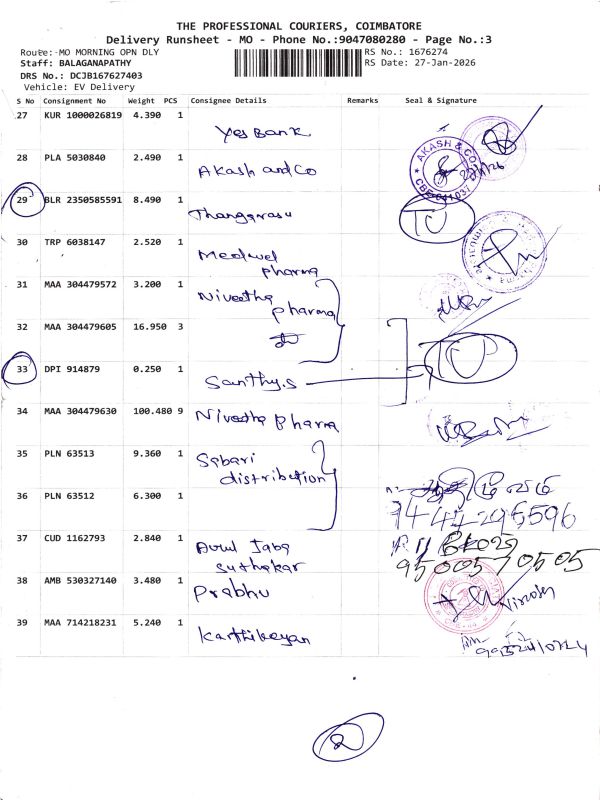 THE PROFESSIONAL COURIERS, COIMBATORE
Delivery Runsheet - MO - Phone No.:9047080280 - Page No.:3
Route: MO MORNING OPN DLY
RS No.: 1676274
Staff: BALAGANAPATHY
RS Date: 27-Jan-2026
DRS No.: DCJB167627403
Vehicle: EV Delivery
S No Consignment No Weight PCS Consignee Details Remarks Seal & Signature
27 KUR 1000026819 4.390 1 Yes Bank
28 PLA 5030840 2.490 1 Akash and Co
AKASH & CO
CBE-641037
29 BLR 2350585591 8.490 1 Thangarasu
30 TRP 6038147 2.520 1 Medwel pharma
31 MAA 304479572 3.200 1 Nivetha pharma
32 MAA 304479605 16.950 3
33 DPI 914879 0.250 1 Santhy.s
34 MAA 304479630 100.480 9 Nivetha pharma
35 PLN 63513 9.360 1 Sabari distribution
36 PLN 63512 6.300 1
37 CUD 1162793 2.840 1 Arul Jaba Suthakar
9500570505
38 AMB 530327140 3.480 1 Prabhu
39 MAA 714218231 5.240 1 Karthikeyan
2